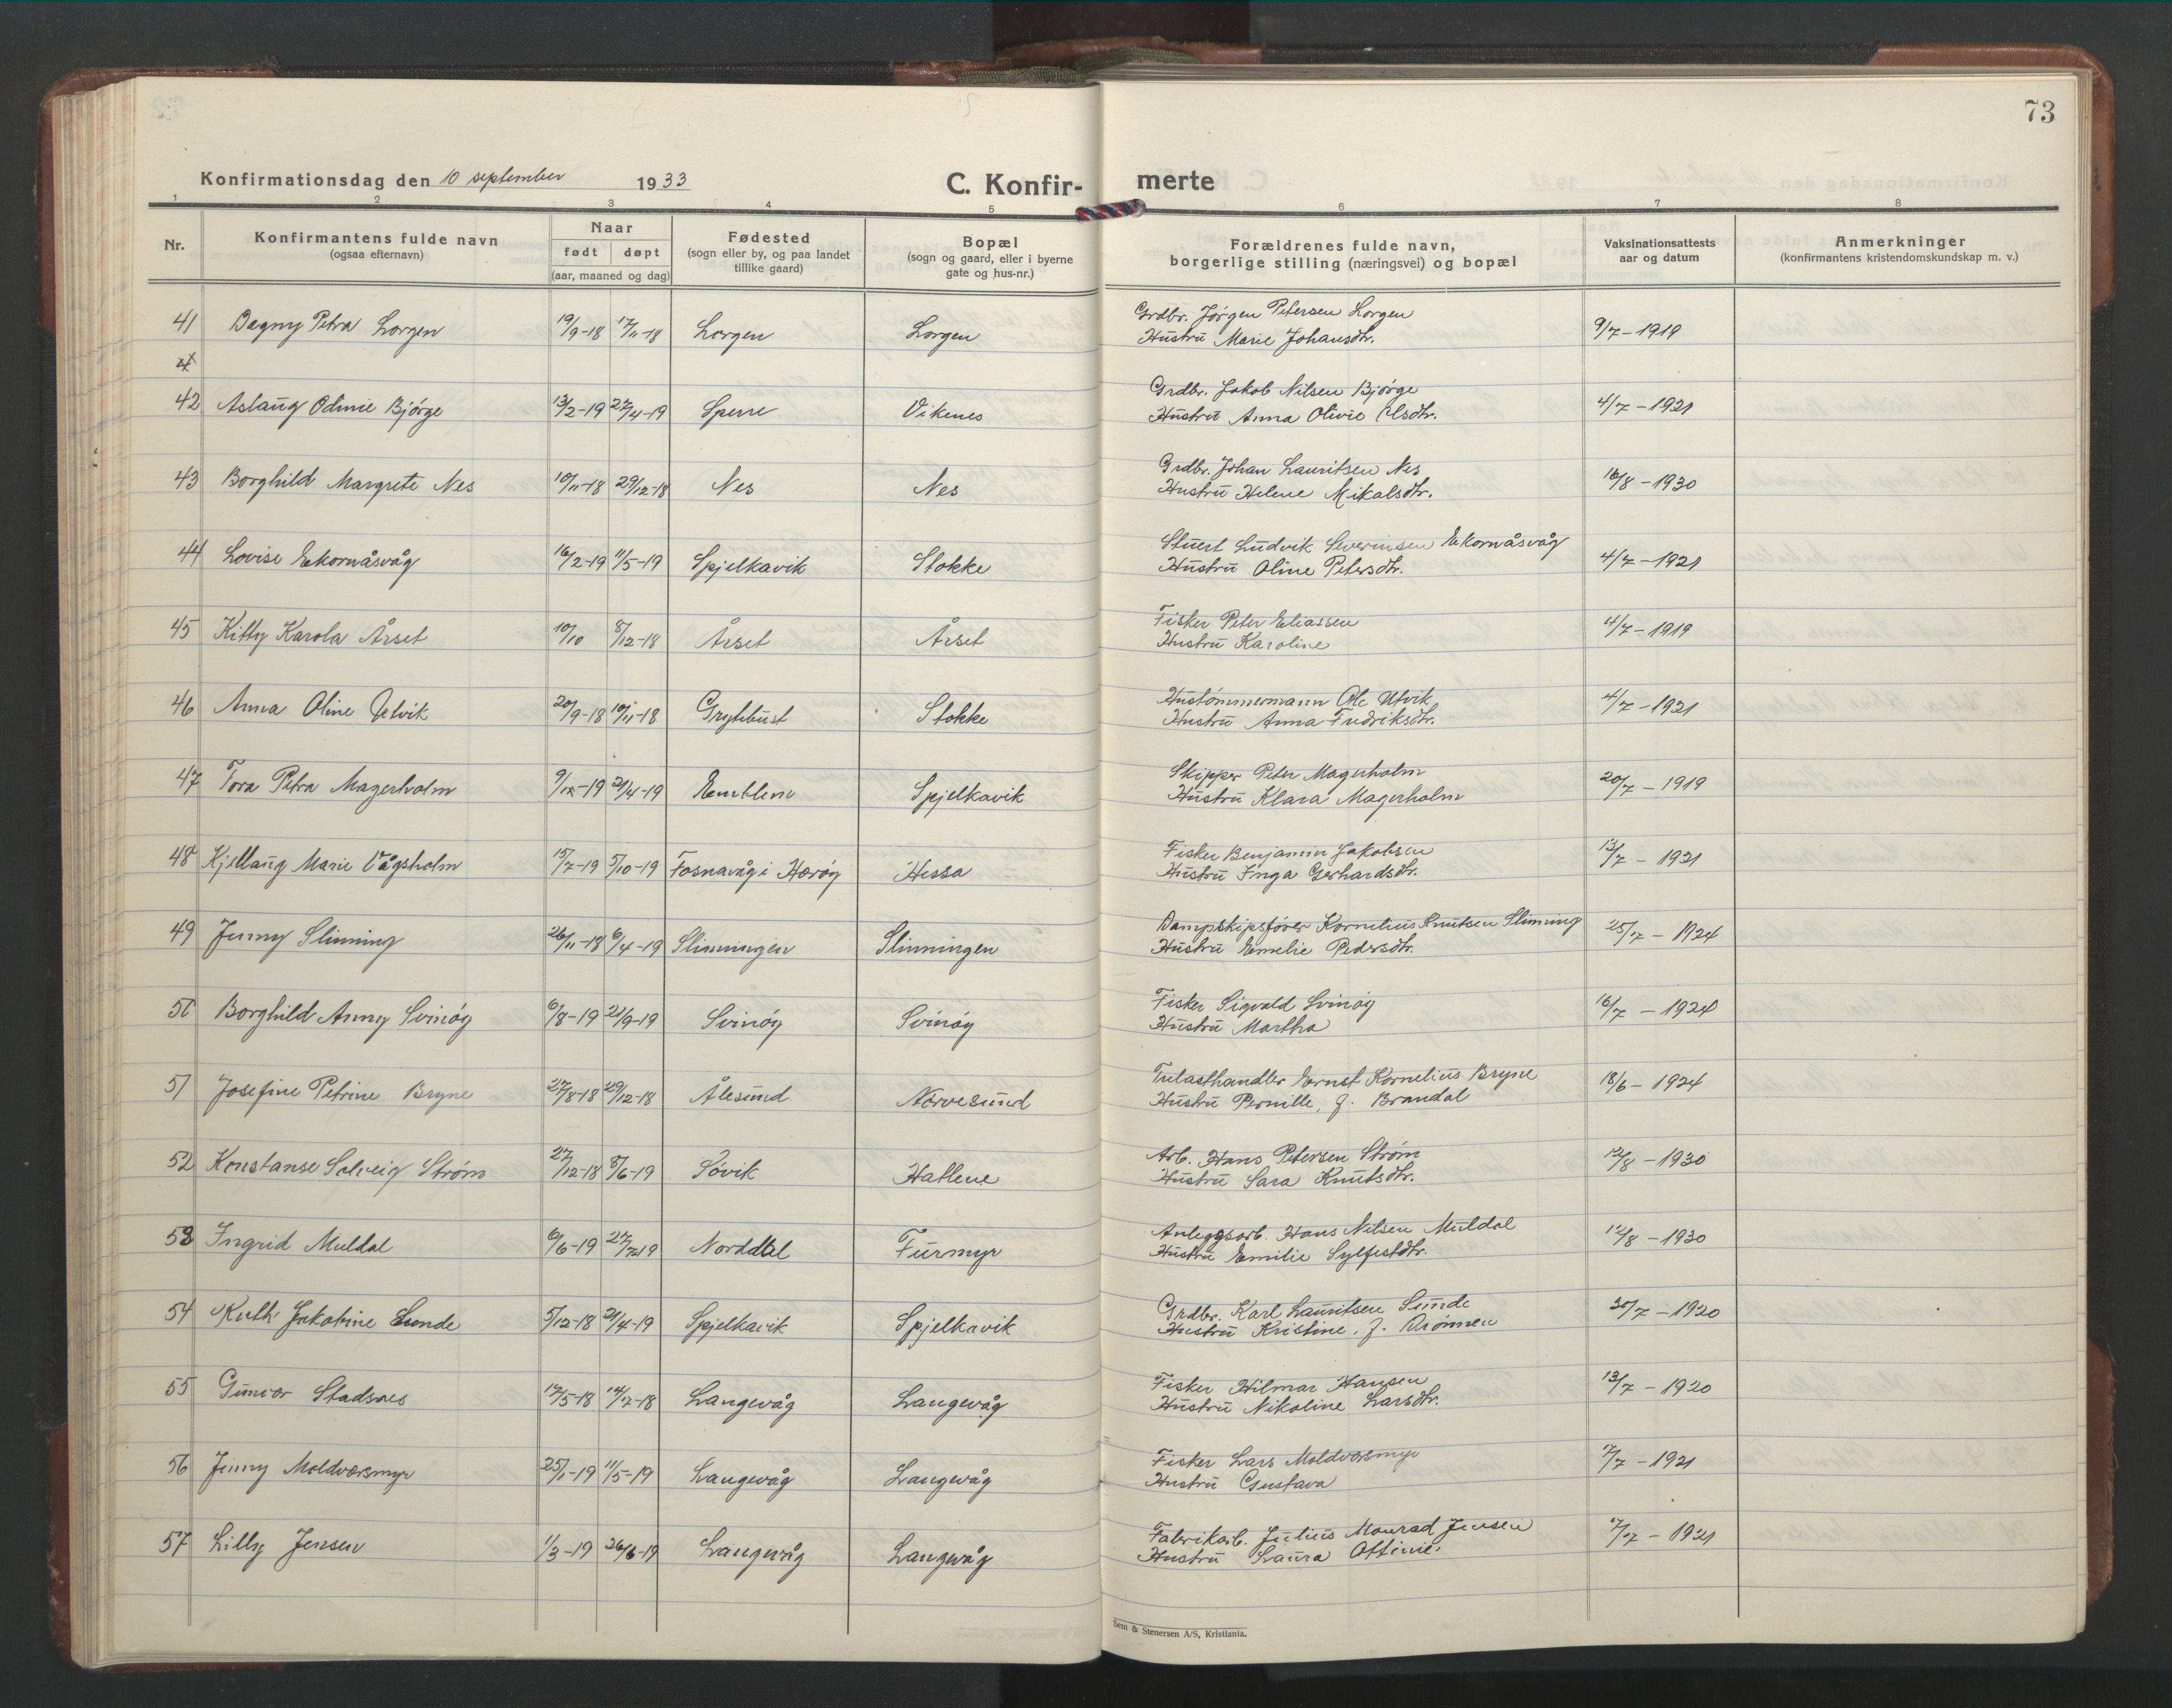 73
Konfirmationsdag den 10 september 1933
C. Konfir- merte
1 2 3 4 5 6 7 8
Nr.
Konfirmantens fulde navn
(ogsaa efternavn)
Naar
født døpt
(aar, maaned og dag)
Fødested
(sogn eller by, og paa landet
tillike gaard)
Bopæl
(sogn og gaard, eller i byerne
gate og hus-nr.)
Forældrenes fulde navn,
borgerlige stilling (næringsvei) og bopæl
Vaksinationsattests
aar og datum
Anmerkninger
(konfirmantens kristendomskundskap m. v.)
41 Dagny Petra Lorgen 19/9-18 17/11-18 Lorgen Lorgen Grdbr. Jørgen Petersen Lorgen
Hustru Marie Johansdtr. 9/7-1919
42 Aslaug Odnie Bjørge 13/2-19 27/4-19 Sperre Vikenes Grdbr. Jakob Nilsen Bjørge
Hustru Anna Olivie Olsdtr. 4/7-1921
43 Borghild Margrete Nes 10/11-18 29/12-18 Nes Nes Grdbr. Johan Lauritsen Nes
Hustru Helene Mikalsdtr. 16/8-1930
44 Lovise Ekornåsvåg 16/2-19 11/5-19 Spjelkavik Stokke Stuert Ludvik Severinsen Ekornåsvåg
Hustru Oline Petersdtr. 4/7-1921
45 Kitty Karola Årset 10/10 8/12-18 Årset Årset Fisker Peter Eliassen
Hustru Karoline 4/7-1919
46 Anna Oline Utvik 20/9-18 10/11-18 Grytebust Stokke Hustømmermann Ole Utvik
Hustru Anna Fredriksdtr. 4/7-1921
47 Tora Petra Magerholm 21/4-19 Emblem Spjelkavik Skipper Peter Magerholm
Hustru Klara Magerholm 20/7-1919
48 Kjellaug Marie Vågsholm 15/7-19 5/10-19 Fosnavåg i Herøy Hessa Fisker Benjamin Jakobsen
Hustru Inga Gerhardsdtr. 13/7-1921
49 Jenny Slinning 26/11-18 6/4-19 Slinningen Slinningen Dampskipsfører Kornelius Knutsen Slinning
Hustru Emelie Pedersdtr. 25/7-1924
50 Borghild Anny Svinøy 6/8-19 21/9-19 Svinøy Svinøy Fisker Sigvald Svinøy
Hustru Martha 16/7-1924
51 Josefine Petrine Bryne 27/8-18 29/12-18 Ålesund Nørvesund Trelasthandler Ernst Kornelius Bryne
Hustru Pernille, f. Brandal 18/6-1924
52 Konstanse Solveig Strøm 27/12-18 8/6-19 Søvik Hatlene Arb. Hans Petersen Strøm
Hustru Sara Knutsdtr. 12/8-1930
53 Ingrid Muldal 6/6-19 27/7-19 Norddal Furmyr Anleggsarb. Hans Nilsen Muldal
Hustru Emilie Sylfestdtr. 12/8-1930
54 Ruth Jakobine Sunde 5/12-18 21/4-19 Spjelkavik Spjelkavik Grdbr. Karl Lauritsen Sunde
Hustru Kristine, f. Drønnen 30/7-1920
55 Gunvor Stadsnes 12/5-18 14/7-18 Langevåg Langevåg Fisker Hilmar Hansen
Hustru Nikoline Larsdtr. 13/7-1920
56 Jenny Moldværsmyr 25/1-19 11/5-19 Langevåg Langevåg Fisker Lars Moldværsmyr
Hustru Gustava 7/7-1921
57 Lilly Jensen 1/3-19 26/6-19 Langevåg Langevåg Fabrikarb. Julius Monrad Jensen
Hustru Laura Ottinie. 7/7-1921
Sem & Stenersen A/S, Kristiania.